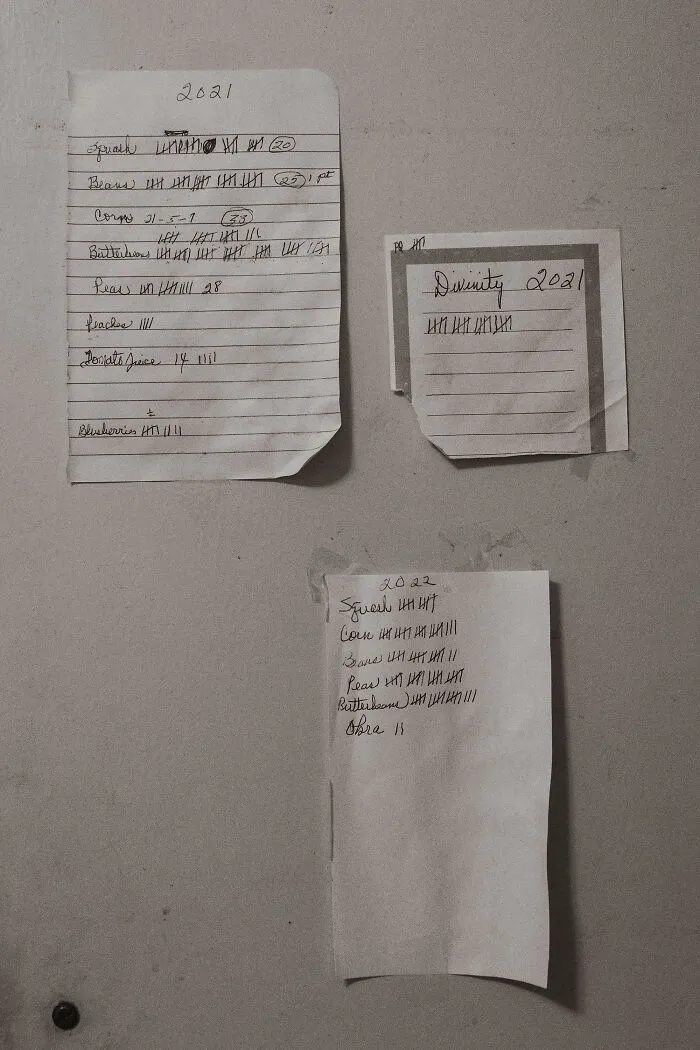 2021
Squash 20
Beans 25 1 pt
Corn 21-5-7 33
Butterbeans
Peas 28
Peaches ||||
Tomato Juice 14 ||||
Blueberries
PP
Divinity 2021
2022
Squash
Corn
Beans
Peas
Butterbeans
Okra ||